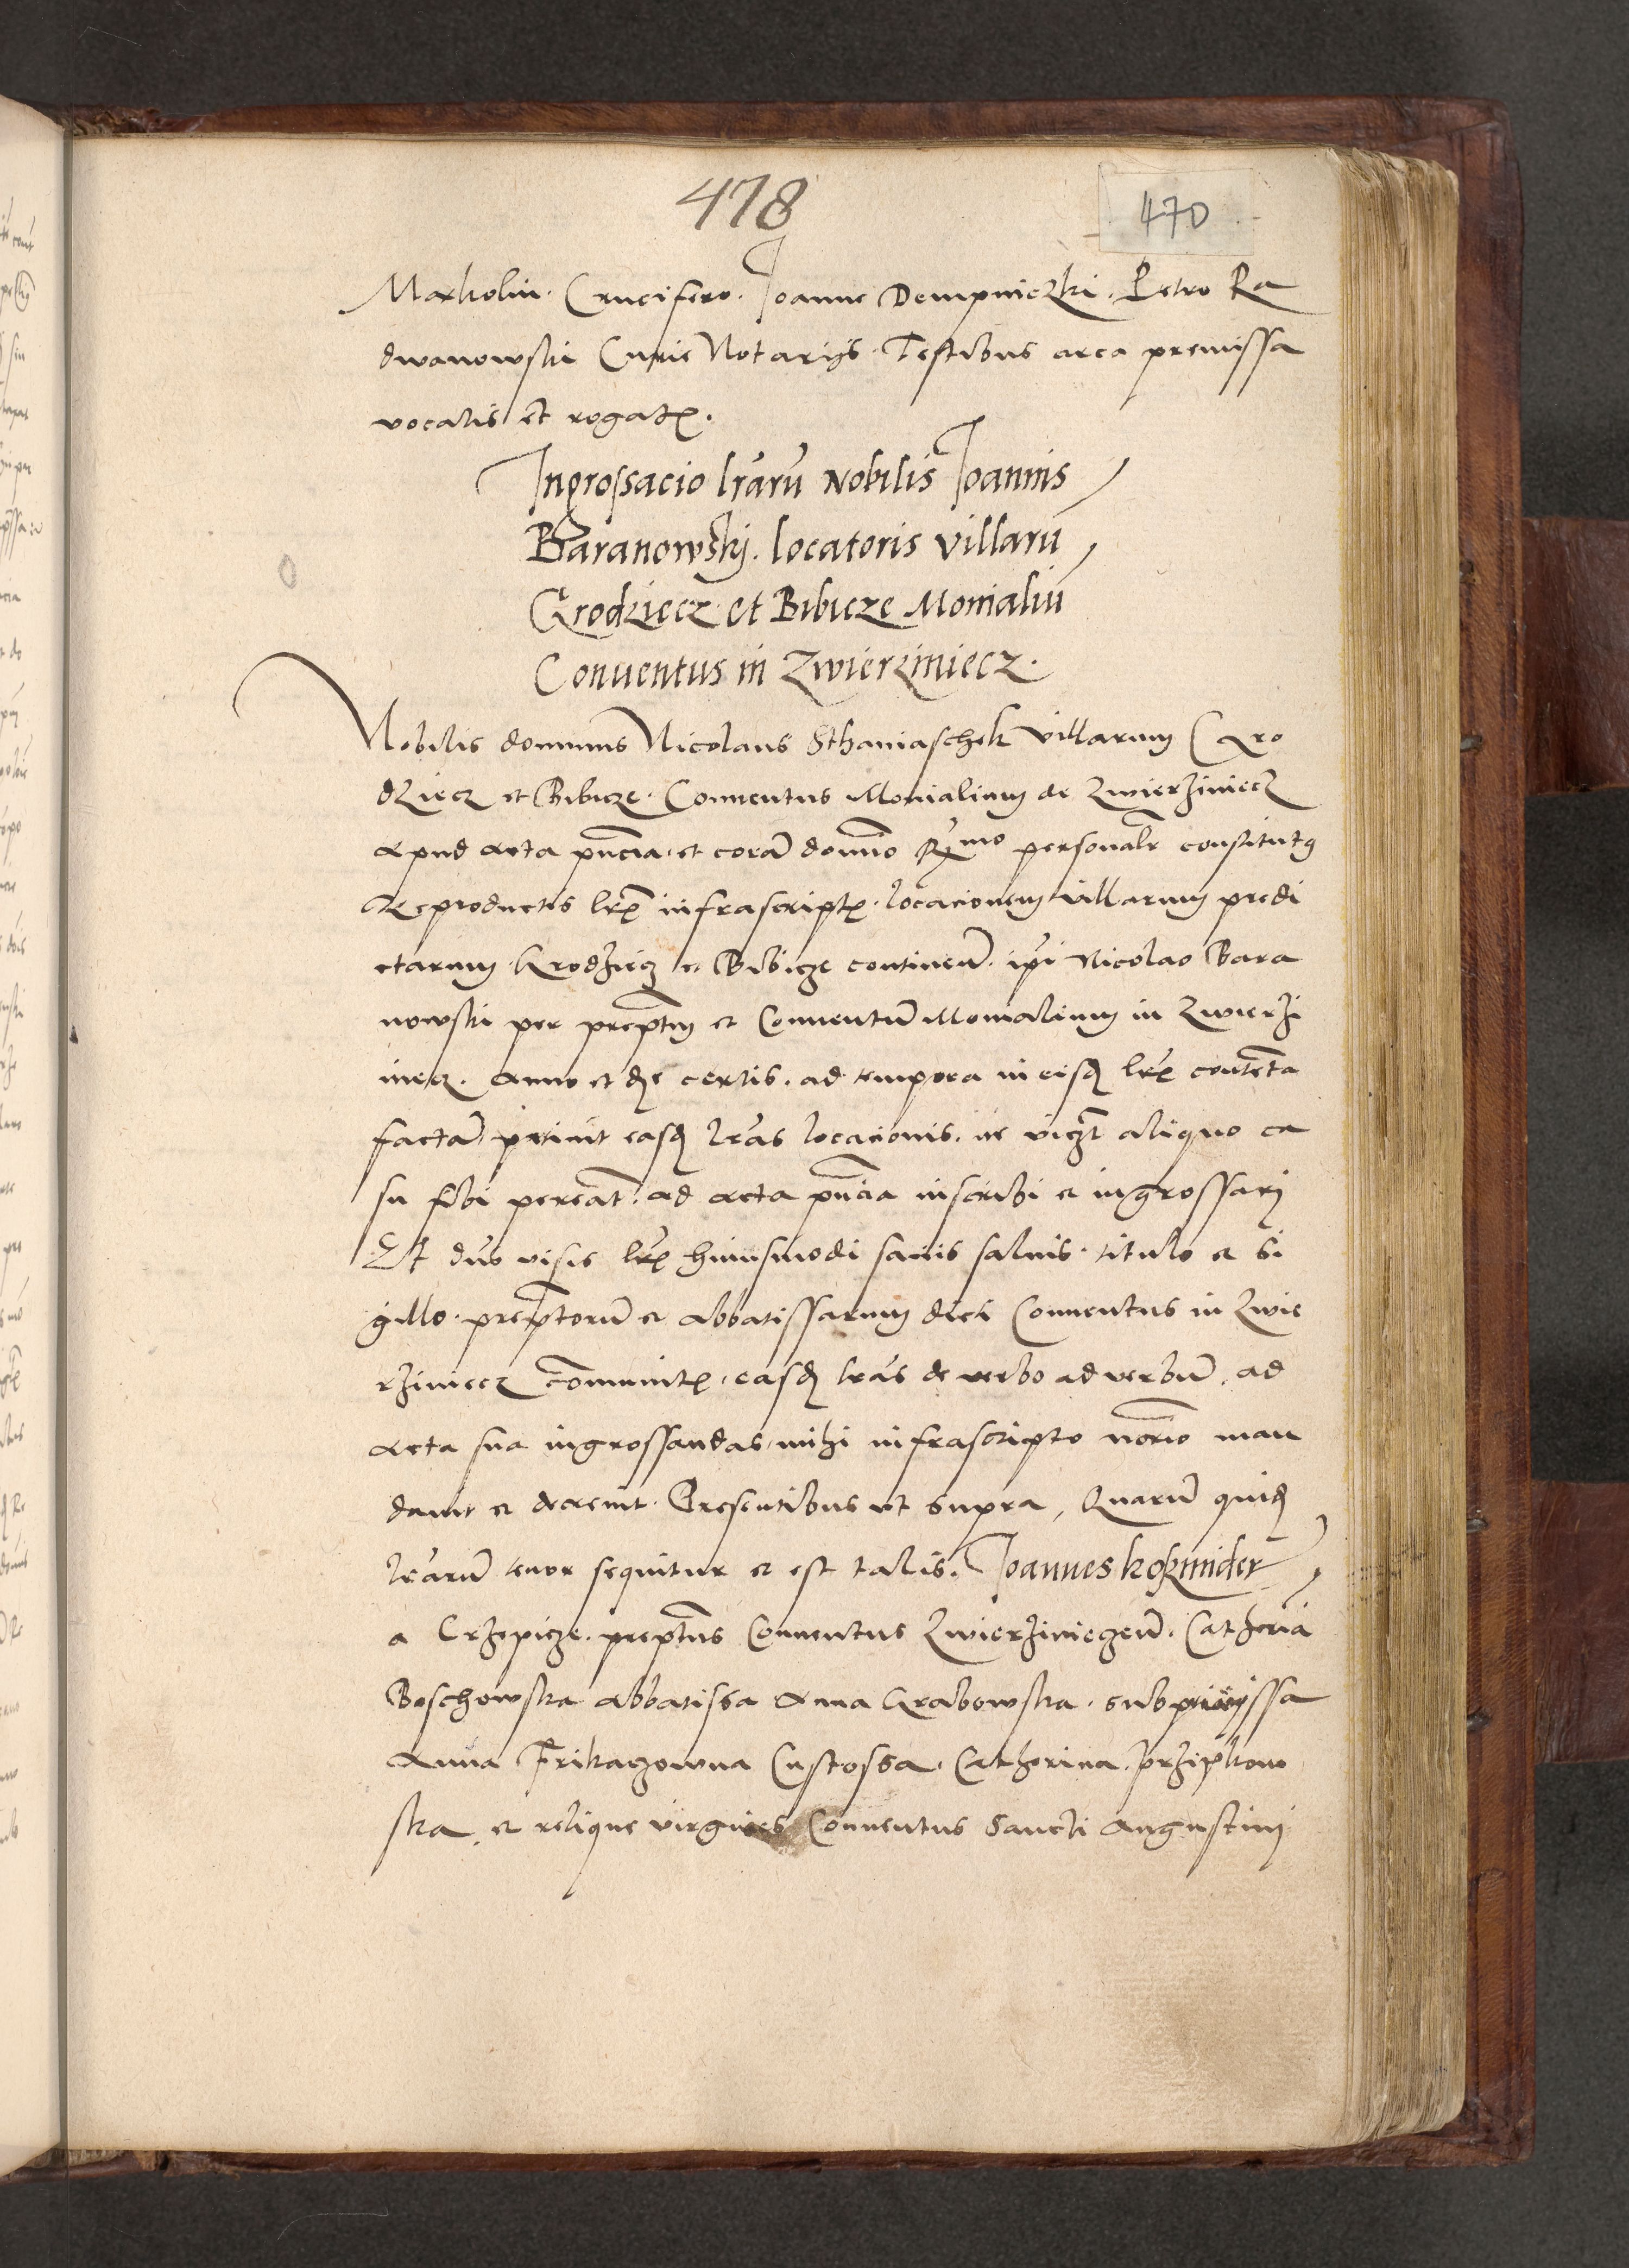 478
470
Maxkolin. Crucifero. Joanne Dempniczki. Petro Ra
dwanowski Curie Notarijs. Testibus circa premissa
vocatis et rogatꝭ.
Ingrossacio lr̃aru Nobilis Joannis
Baranowskj. locatoris villaru
Grodziecz et Bibicze Monialiu
Conuentus in Zwierziniecz.
Nobilis dominus Nicolaus Sthaniaschek villarum Gro
dziecz et Bibicze. Conuentus Monialium de Zwierziniecz
apud acta pñcia et corã domino Rmo personalr constitutꝰ
Reproductis lrꝭ infrascriptꝭ. locacionem villarum predi
ctarum Krodziecz et Bibicze continen̄. ipsi Nicolao Bara
nowski per preptm et Conuentũ Monialium in Zwierzi
niecz. anno et die certis. ad tempora in eisdꝫ lrꝭ contenta
factã petiuit easdꝫ lras locacionis. ne viczt aliquo ca
su sibi pereãt. ad acta pñcia inscribi et ingrossarj
Et dns visis lrꝭ huiusmodi sanis saluis. titulo et si
gillo. preptorũ et abbatissarum dicti Conuentus in Zwie
rziniecz cõmunitꝭ. easdꝫ lras de verbo ad verbũ. ad
acta sua ingrossandas mihi infrascripto norio man
dauit et decreuit. Presentibus vt supra, Quarũ quidꝫ
lrarũ tenor sequitur et est talis. Joannes koszmider
a Crzepicze. preptus Conuentus Zwierziniecen̄. Catherĩa
Boschowska abbatissa Anna Grabowska. subpriorissa
Anna Frikaczowna Custossa. Catherina Przipkow
ska, et relique virgines Conuentus Sancti Augustinj